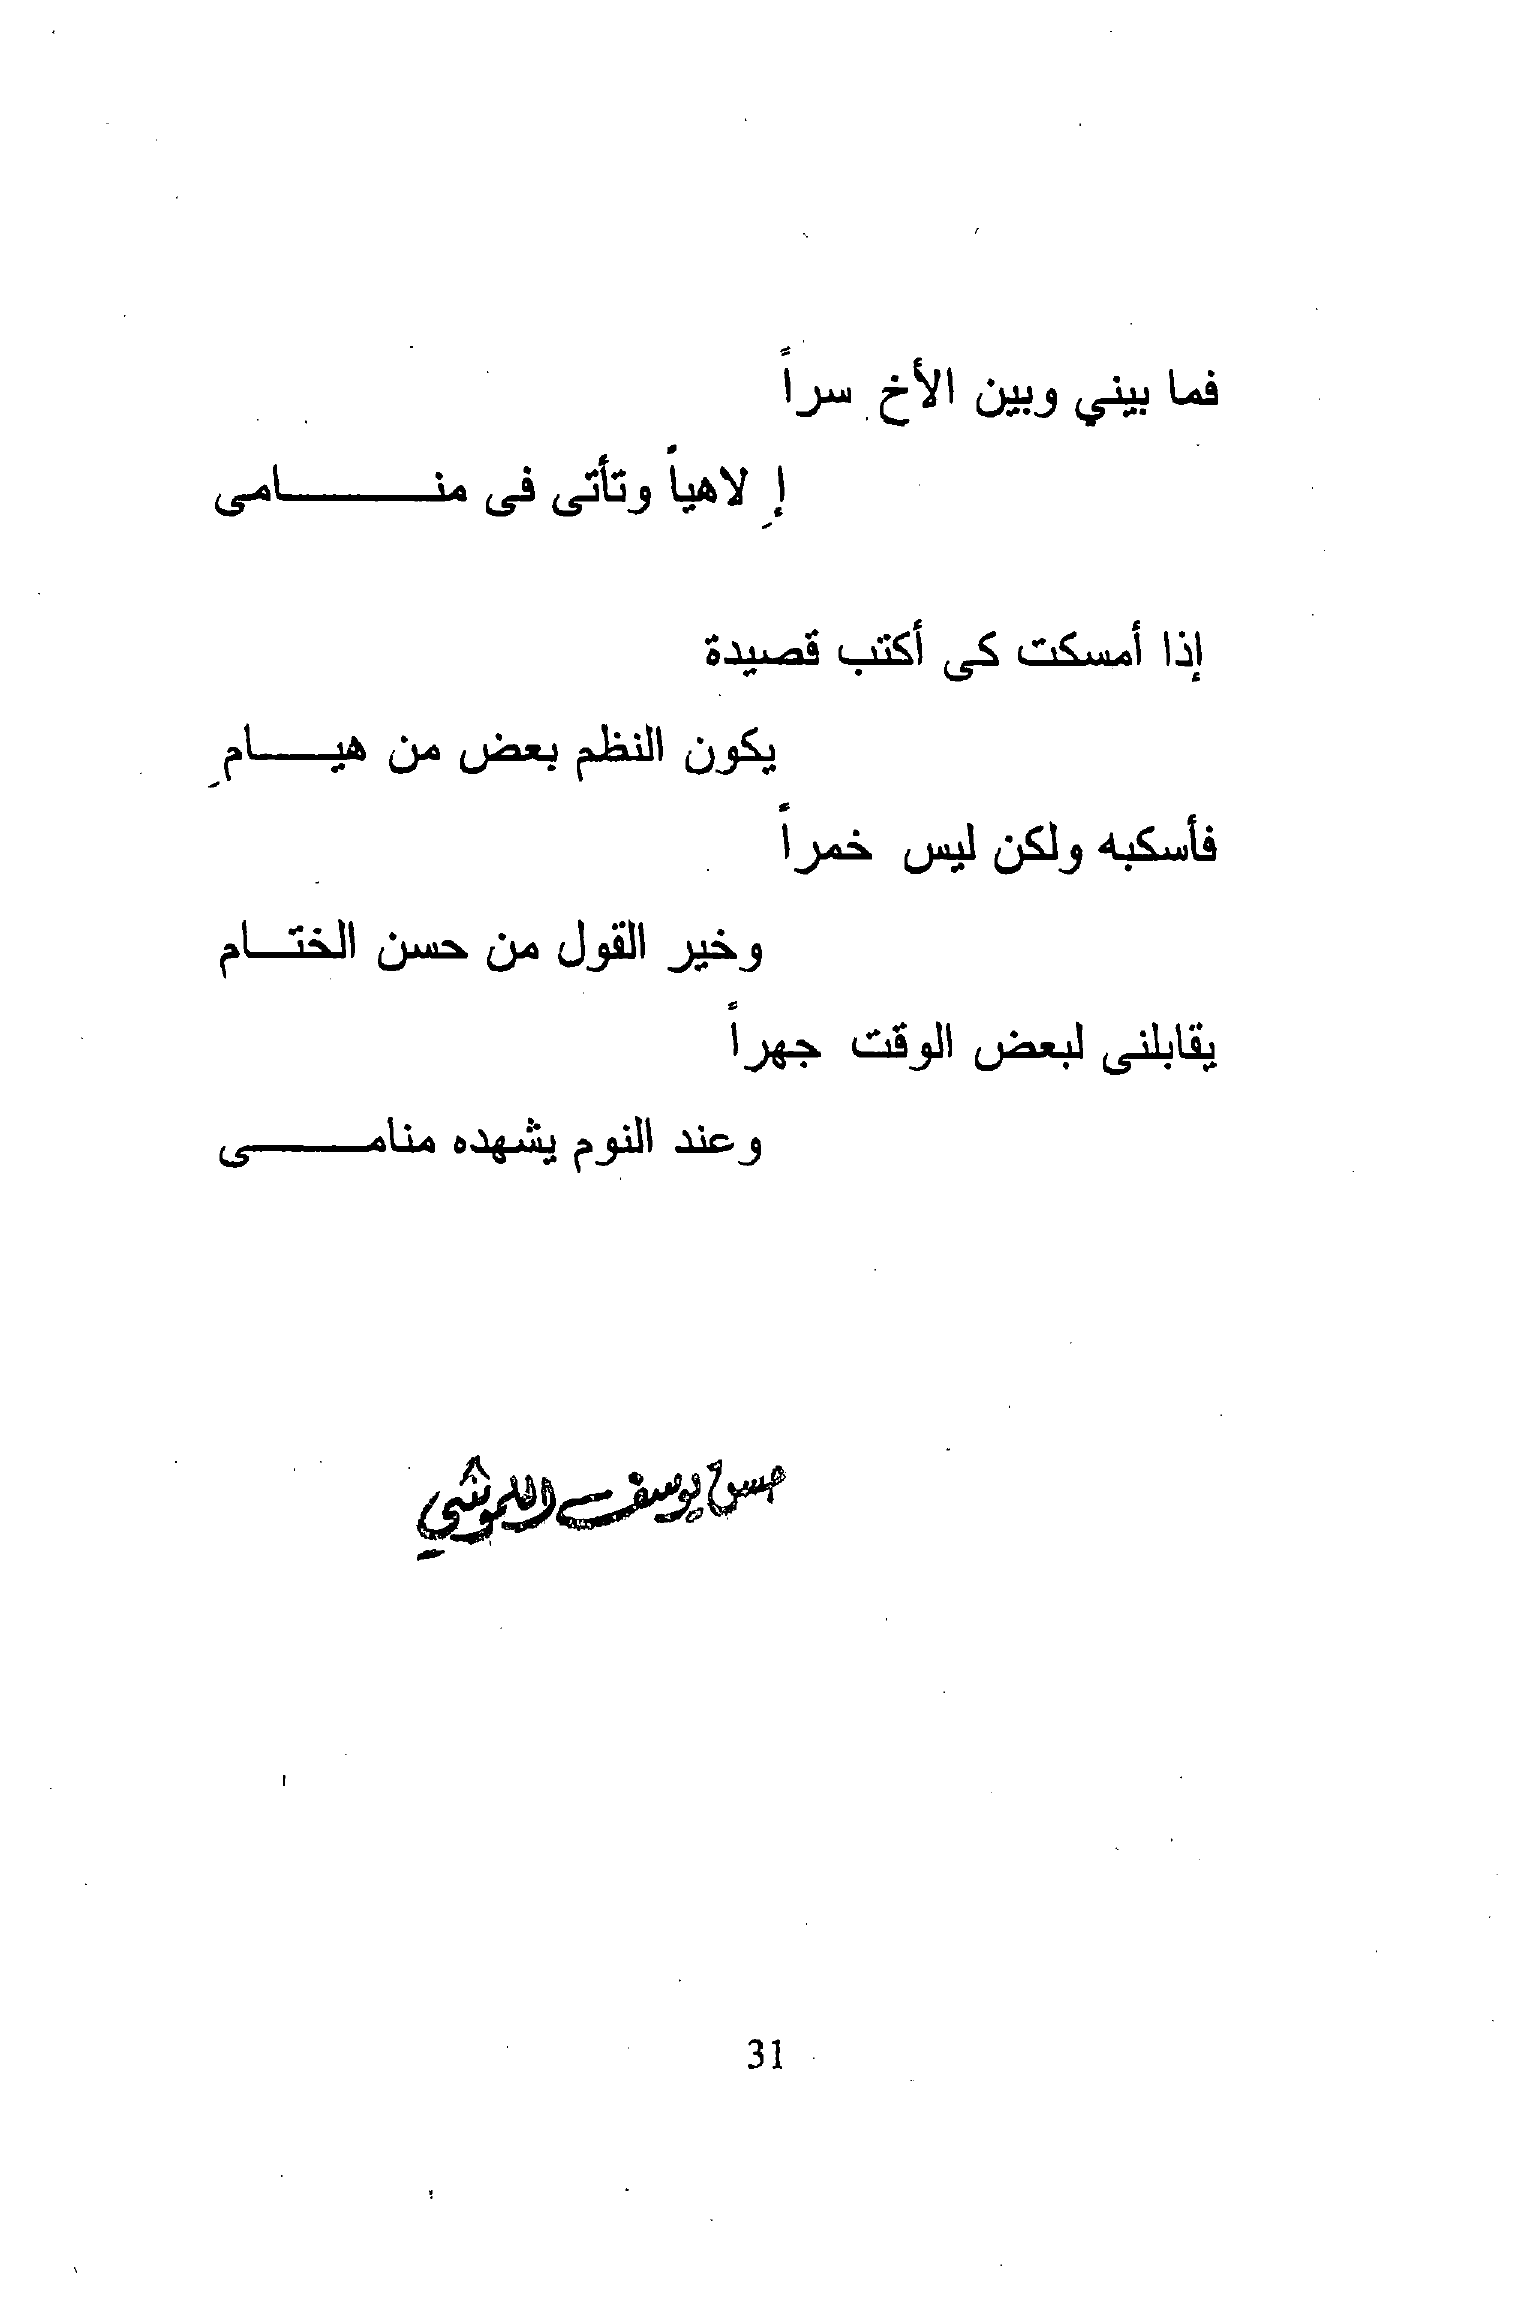 فما بيني وبين الأخ سراً
إِ لاهياً وتأتى فى منـــــــامى
إذا أمسكت كى أكتب قصيدة
يكون النظم بعض من هيـــــامِ
فأسكبه ولكن ليس خمراً
وخير القول من حسن الختـــام
يقابلنى لبعض الوقت جهراً
وعند النوم يشهده منامـــــــى
حسن يوسف اللموشي
31